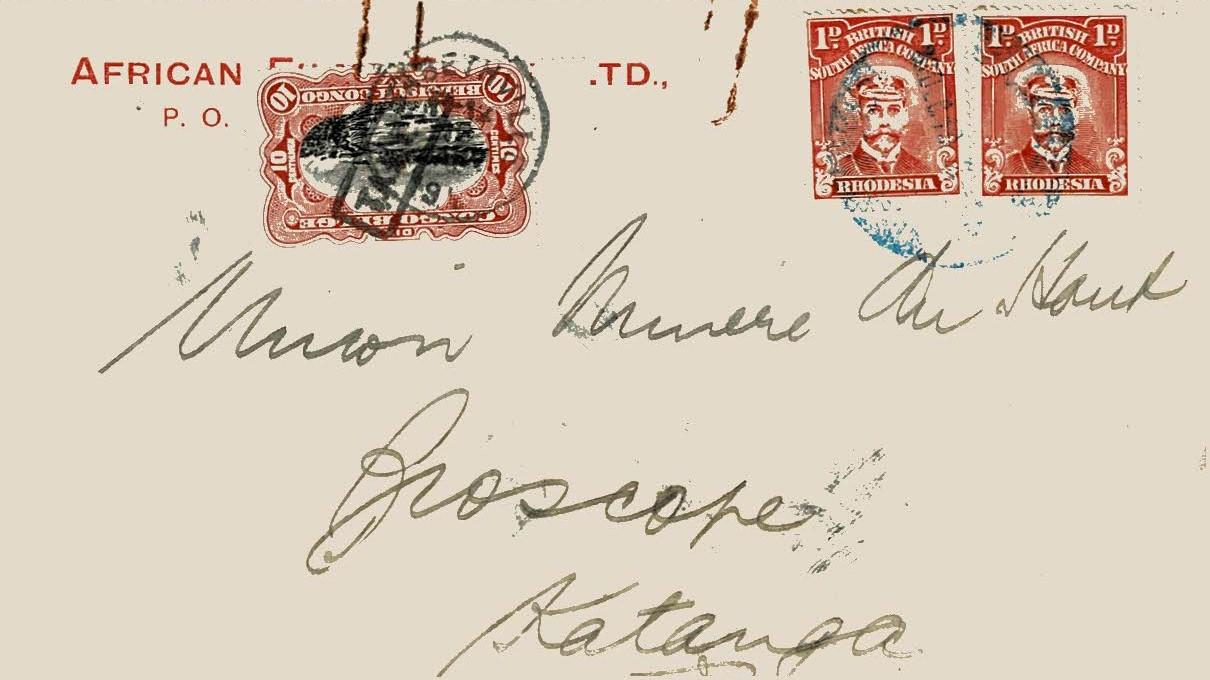 AFRICAN
.TD.,
P. O.
10 10
BELGIAN CONGO
10 CENTIMES
10 CENTIMES
CONGO BELGE
1D BRITISH 1D
SOUTH AFRICA COMPANY
RHODESIA
1D BRITISH 1D
SOUTH AFRICA COMPANY
RHODESIA
Union Miniere Du Haut
Katanga